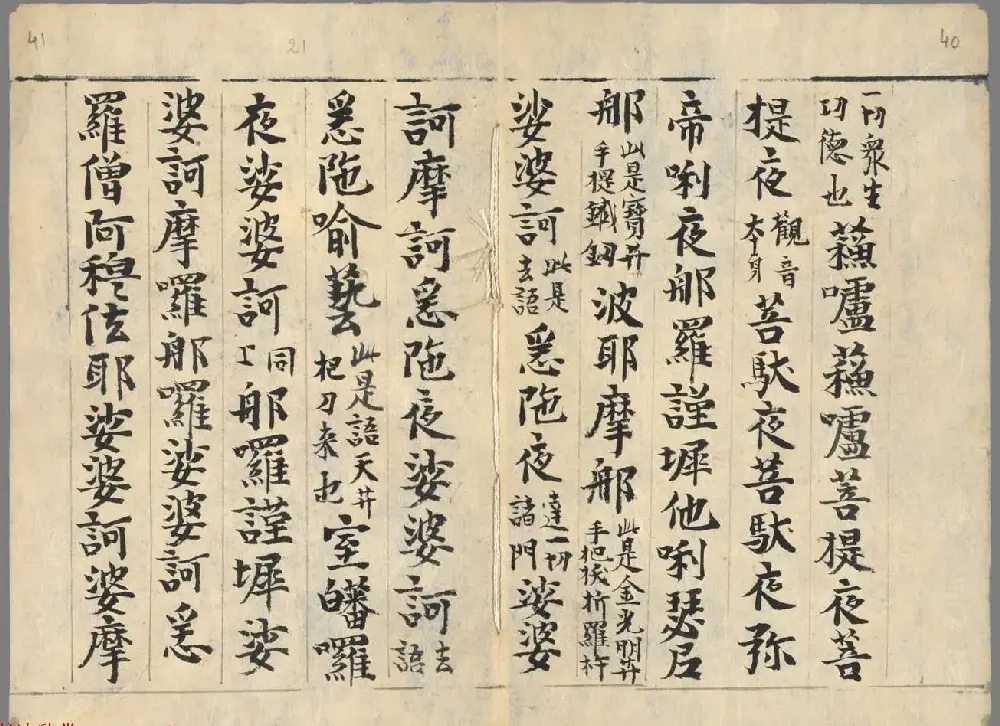 40
21
41
一切衆生功德也蘓嚧蘓嚧菩提夜菩
提夜觀音本身菩馱夜菩馱夜弥
帝唎夜那羅謹墀他唎瑟尼
那此是寶𦬇手提鐵釼波耶摩那此是金光明𦬇手把拔折羅杵
娑婆訶此是去語悉陁夜達一切諸門娑婆
訶摩訶悉陁夜娑婆訶去語
悉陁喻藝此是語天𦬇把刀来也室皤囉
夜娑婆訶同上那囉謹墀娑
婆訶摩囉那囉娑婆訶悉
羅僧阿穆佉耶娑婆訶婆摩